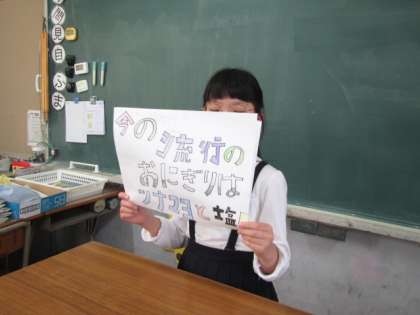 今の流行の
おにぎりは
ツナマヨと塩!